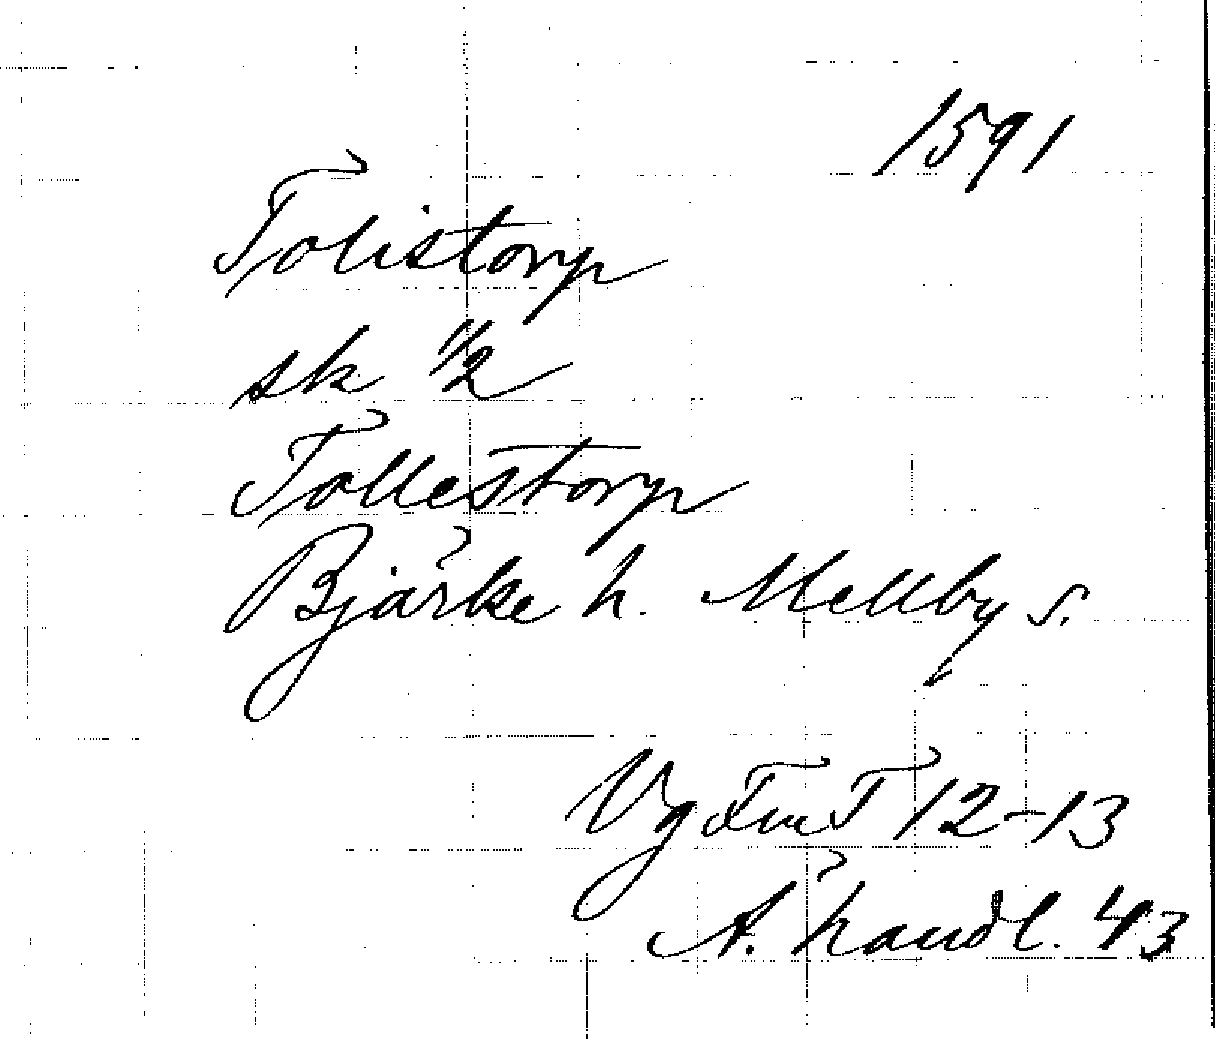 1591
Tolistorp
sk 1/2
Tollestorp
Bjärke h. Mellby s.
Vg FmT 12-13
A. handl. 43